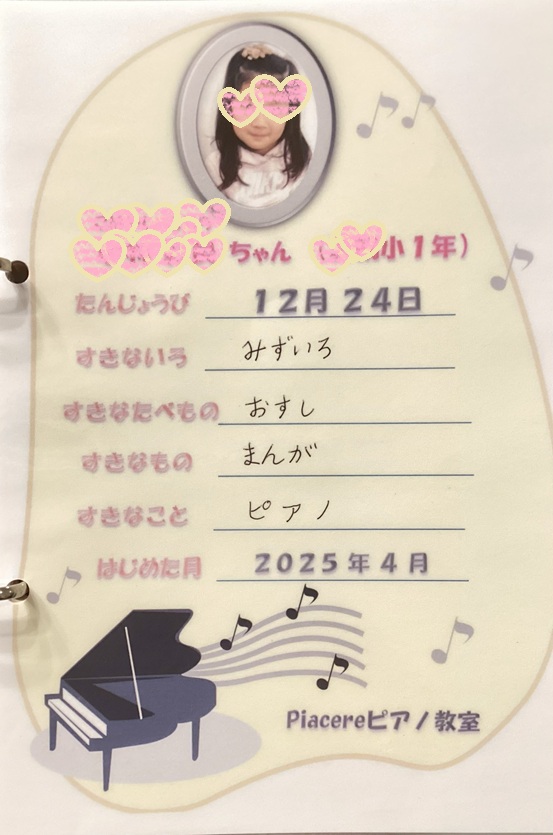 ちゃん 小1年)
たんじょうび 12月24日
すきないろ みずいろ
すきなたべもの おすし
すきなもの まんが
すきなこと ピアノ
はじめた月 2025年4月
Piacereピアノ教室